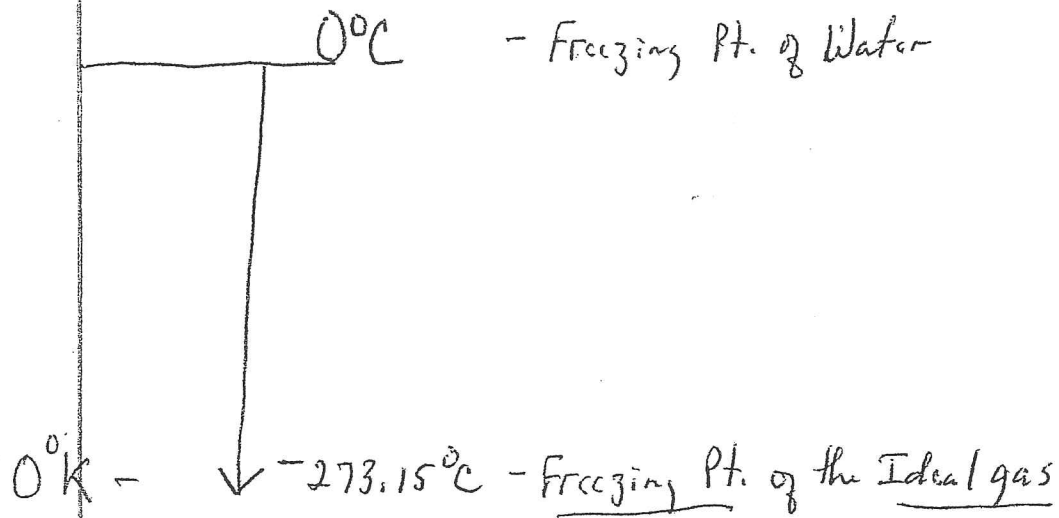 0°C - Freezing Pt. of Water
0°K - -273.15°C - Freezing Pt. of the Ideal gas